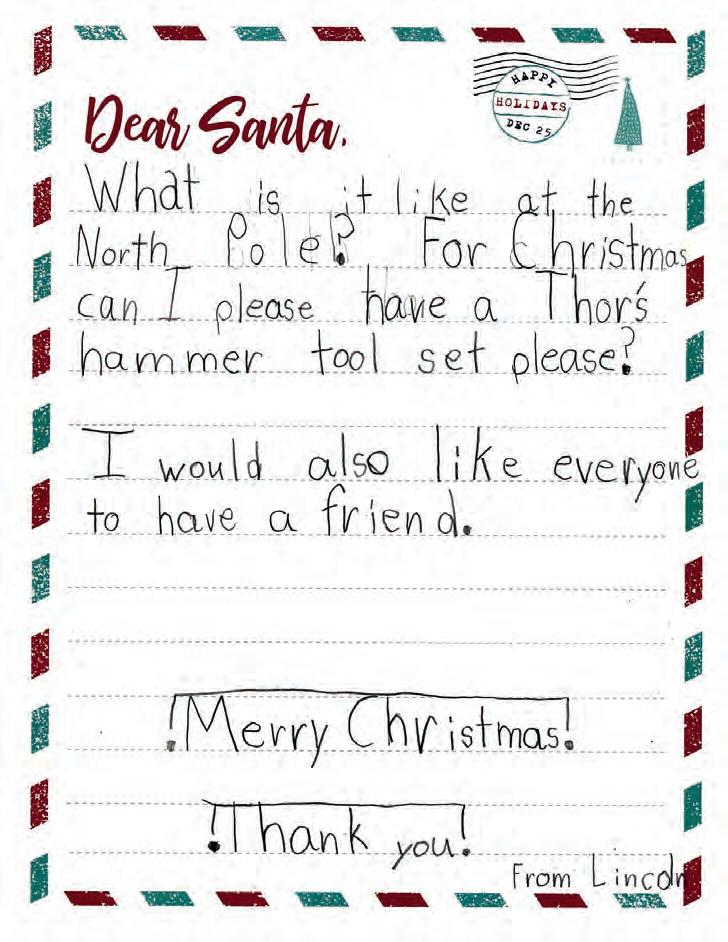 HAPPY
HOLIDAYS
DEC 25
Dear Santa,
What is it like at the
North Pole? For Christmas
can I please have a Thor's
hammer tool set please?
I would also like everyone
to have a friend.
!Merry Christmas!
!Thank you!
From Lincoln